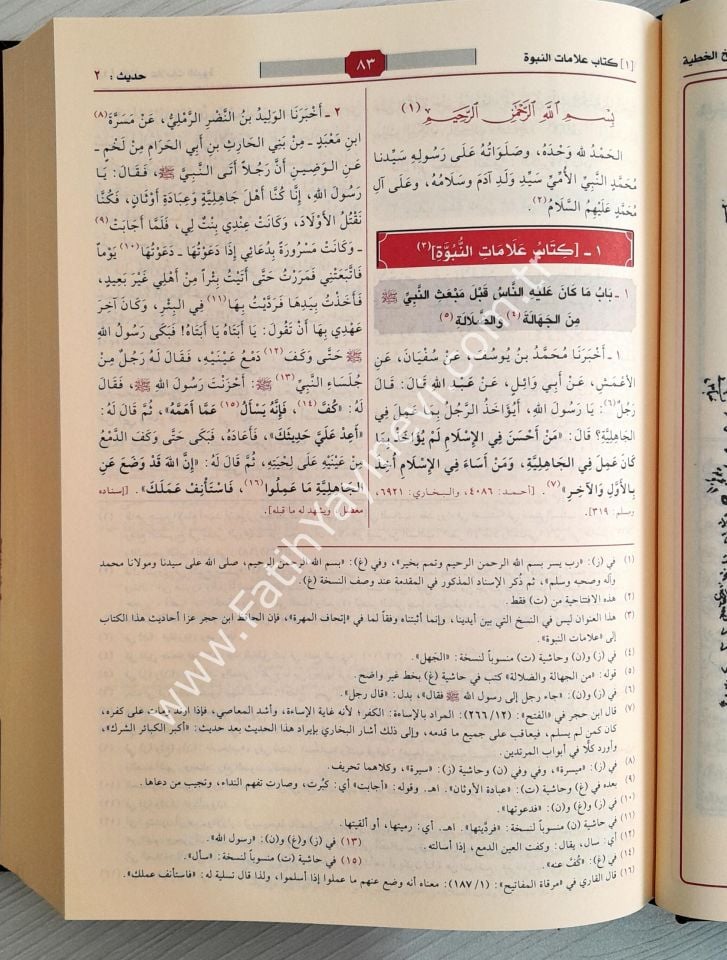 [١] كتاب علامات النبوة
٨٣
حديث : ٢
بِسْمِ اللَّهِ الرَّحْمَنِ الرَّحِيمِ (١)
الحَمْدُ لله وَحْدَهُ، وَصَلَوَاتُهُ عَلَى رَسُولِهِ سَيِّدِنا
مُحَمَّدٍ النَّبِيِّ الأُمِّيِّ سَيِّدِ وَلَدِ آدَمَ وَسَلَامُهُ، وَعَلَى آلِ
مُحَمَّدٍ عَلَيْهِمُ السَّلَامُ(٢).
١ ـ [كِتَابُ عَلَامَاتِ النُّبُوَّةِ](٣)
١ ـ بَابُ مَا كَانَ عَلَيْهِ النَّاسُ قَبْلَ مَبْعَثِ النَّبِيِّ ﷺ
مِنَ الجَهَالَةِ(٤) وَالضَّلَالَةِ(٥)
١ ـ أَخْبَرَنَا مُحَمَّدُ بنُ يُوسُفَ، عَنْ سُفْيَانَ، عَنِ
الأَعْمَشِ، عَنْ أَبِي وَائِلٍ، عَنْ عَبْدِ الله قَالَ: قَالَ
رَجُلٌ(٦): يَا رَسُولَ الله، أَيُؤَاخَذُ الرَّجُلُ بِمَا عَمِلَ فِي
الجَاهِلِيَّةِ؟ قَالَ: «مَنْ أَحْسَنَ فِي الإِسْلَامِ لَمْ يُؤَاخَذْ بِمَا
كَانَ عَمِلَ فِي الجَاهِلِيَّةِ، وَمَنْ أَسَاءَ فِي الإِسْلَامِ أُخِذَ
بِالأَوَّلِ وَالآخِرِ»(٧). [أحمد: ٤٠٨٦، والبخاري: ٦٩٢١،
ومسلم: ٣١٩].
٢ ـ أَخْبَرَنَا الوَلِيدُ بنُ النَّضْرِ الرَّمْلِيُّ، عَنْ مَسَرَّةَ(٨)
ابنِ مَعْبَدٍ ـ مِنْ بَنِي الحَارِثِ بنِ أَبِي الحَرَامِ مِنْ لَخْمٍ ـ
عَنِ الوَضِينِ أَنَّ رَجُلاً أَتَى النَّبِيَّ ﷺ، فَقَالَ: يَا
رَسُولَ الله، إِنَّا كُنَّا أَهْلَ جَاهِلِيَّةٍ وَعِبَادَةِ أَوْثَانٍ، فَكُنَّا
نَقْتُلُ الأَوْلَادَ، وَكَانَتْ عِنْدِي بِنْتٌ لِي، فَلَمَّا أَجَابَتْ(٩)
ـ وَكَانَتْ مَسْرُورَةً بِدُعَائِي إِذَا دَعَوْتُهَا ـ دَعَوْتُهَا(١٠) يَوْماً
فَاتَّبَعَتْنِي فَمَرَرْتُ حَتَّى أَتَيْتُ بِئْراً مِنْ أَهْلِي غَيْرَ بَعِيدٍ،
فَأَخَذْتُ بِيَدِهَا فَرَدَّيْتُ بِهَا(١١) فِي البِئْرِ، وَكَانَ آخِرَ
عَهْدِي بِهَا أَنْ تَقُولَ: يَا أَبَتَاهُ يَا أَبَتَاهُ! فَبَكَى رَسُولُ الله
ﷺ حَتَّى وَكَفَ(١٢) دَمْعُ عَيْنَيْهِ، فَقَالَ لَهُ رَجُلٌ مِنْ
جُلَسَاءِ النَّبِيِّ(١٣) ﷺ: أَحْزَنْتَ رَسُولَ الله ﷺ، فَقَالَ
لَهُ: «كُفَّ(١٤)، فَإِنَّهُ يَسْأَلُ(١٥) عَمَّا أَهَمَّهُ»، ثُمَّ قَالَ لَهُ:
«أَعِدْ عَلَيَّ حَدِيثَكَ»، فَأَعَادَهُ، فَبَكَى حَتَّى وَكَفَ الدَّمْعُ
مِنْ عَيْنَيْهِ عَلَى لِحْيَتِهِ، ثُمَّ قَالَ لَهُ: «إِنَّ اللهَ قَدْ وَضَعَ عَنِ
الجَاهِلِيَّةِ مَا عَمِلُوا(١٦)، فَاسْتَأْنِفْ عَمَلَكَ». [إسناده
معضل، ويشهد له ما قبله].
(١) في (ز): «رب يسر بسم الله الرحمن الرحيم وتمم بخير»، وفي (غ): «بسم الله الرحمن الرحيم، صلى الله على سيدنا ومولانا محمد
وآله وصحبه وسلم»، ثم ذُكر الإسناد المذكور في المقدمة عند وصف النسخة (غ).
(٢) هذه الافتتاحية من (ت) فقط.
(٣) هذا العنوان ليس في النسخ التي بين أيدينا، وإنما أثبتناه وفقاً لما في «إتحاف المهرة»، فإن الحافظ ابن حجر عزا أحاديث هذا الكتاب
إلى «علامات النبوة».
(٤) في (ز) و(ن) وحاشية (ت) منسوباً لنسخة: «الجَهل».
(٥) قوله: «من الجهالة والضلالة» كتب في حاشية (غ) بخط غير واضح.
(٦) في (ز) و(ن): «جاء رجل إلى رسول الله ﷺ فقال»، بدل: «قال رجل».
(٧) قال ابن حجر في «الفتح»: (١٢/٢٦٦): المراد بالإساءة: الكفر؛ لأنه غاية الإساءة، وأشد المعاصي، فإذا ارتد ومات على كفره،
كان كمن لم يسلم، فيعاقب على جميع ما قدمه، وإلى ذلك أشار البخاري بإيراد هذا الحديث بعد حديث: «أكبر الكبائر الشرك»،
وأورد كلّاً في أبواب المرتدين.
(٨) في (ز): «ميسرة»، وفي وفي (ن) وحاشية (ز): «سيرة»، وكلاهما تحريف.
(٩) بعده في (غ) وحاشية (ت): «عبادة الأوثان». اهـ. وقوله: «أجابت» أي: كبُرت، وصارت تفهم النداء، وتجيب من دعاها.
(١٠) في (ز) و(غ) و(ن): «فدعوتها».
(١١) في حاشية (ن) منسوباً لنسخة: «فردَّيتها». اهـ. أي: رميتها، أو ألقيتها.
(١٢) أي: سال، يقال: وكفت العين الدمع، إذا أسالته.
(١٣) في (ز) و(غ) و(ن): «رسول الله».
(١٤) في (غ): «كُفَّ عنه».
(١٥) في حاشية (ت) منسوباً لنسخة: «سأل».
(١٦) قال القاري في «مرقاة المفاتيح»: (١/١٨٧): معناه أنه وضع عنهم ما عملوا إذا أسلموا، ولذا قال تسلية له: «فاستأنف عملك».
خ الخطية
www.FatihYayinevi.com.tr